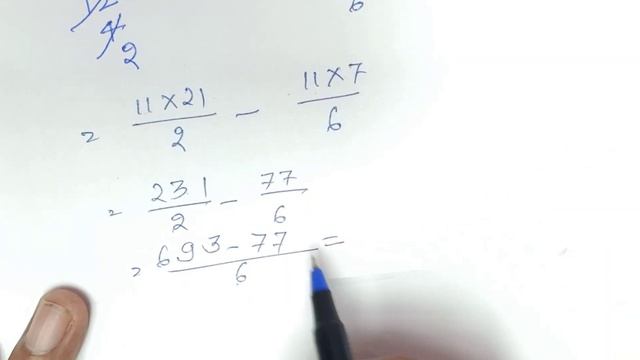 6
4
2
= 11×21/2 - 11×7/6
= 231/2 - 77/6
= 693-77/6 =